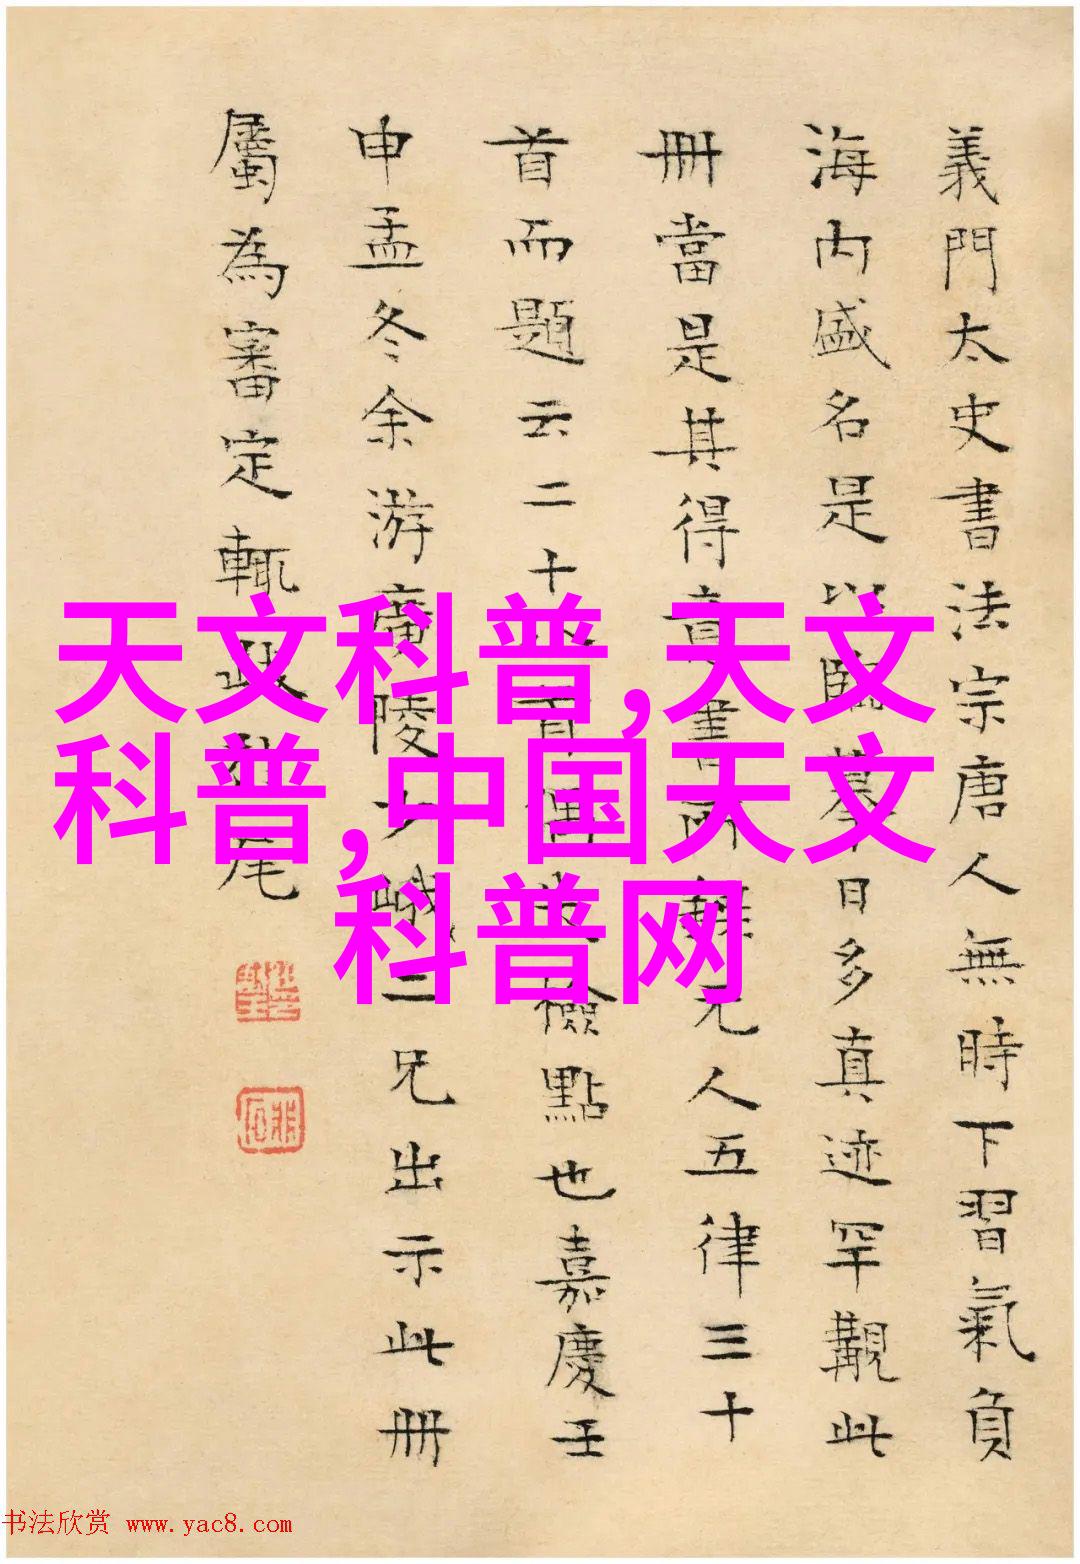 義門太史書法宗唐人無時下習氣負
海内盛名是以臨摹日多真迹罕觏此
冊當是其得意書所錄元人五律三十
首而題云二十首檢點也嘉慶壬
申孟冬余游廣陵少峨二兄出示此冊
屬為審定輒跋尾
天文科普,天文
科普,中国天文
科普网
书法欣赏 www.yac8.com